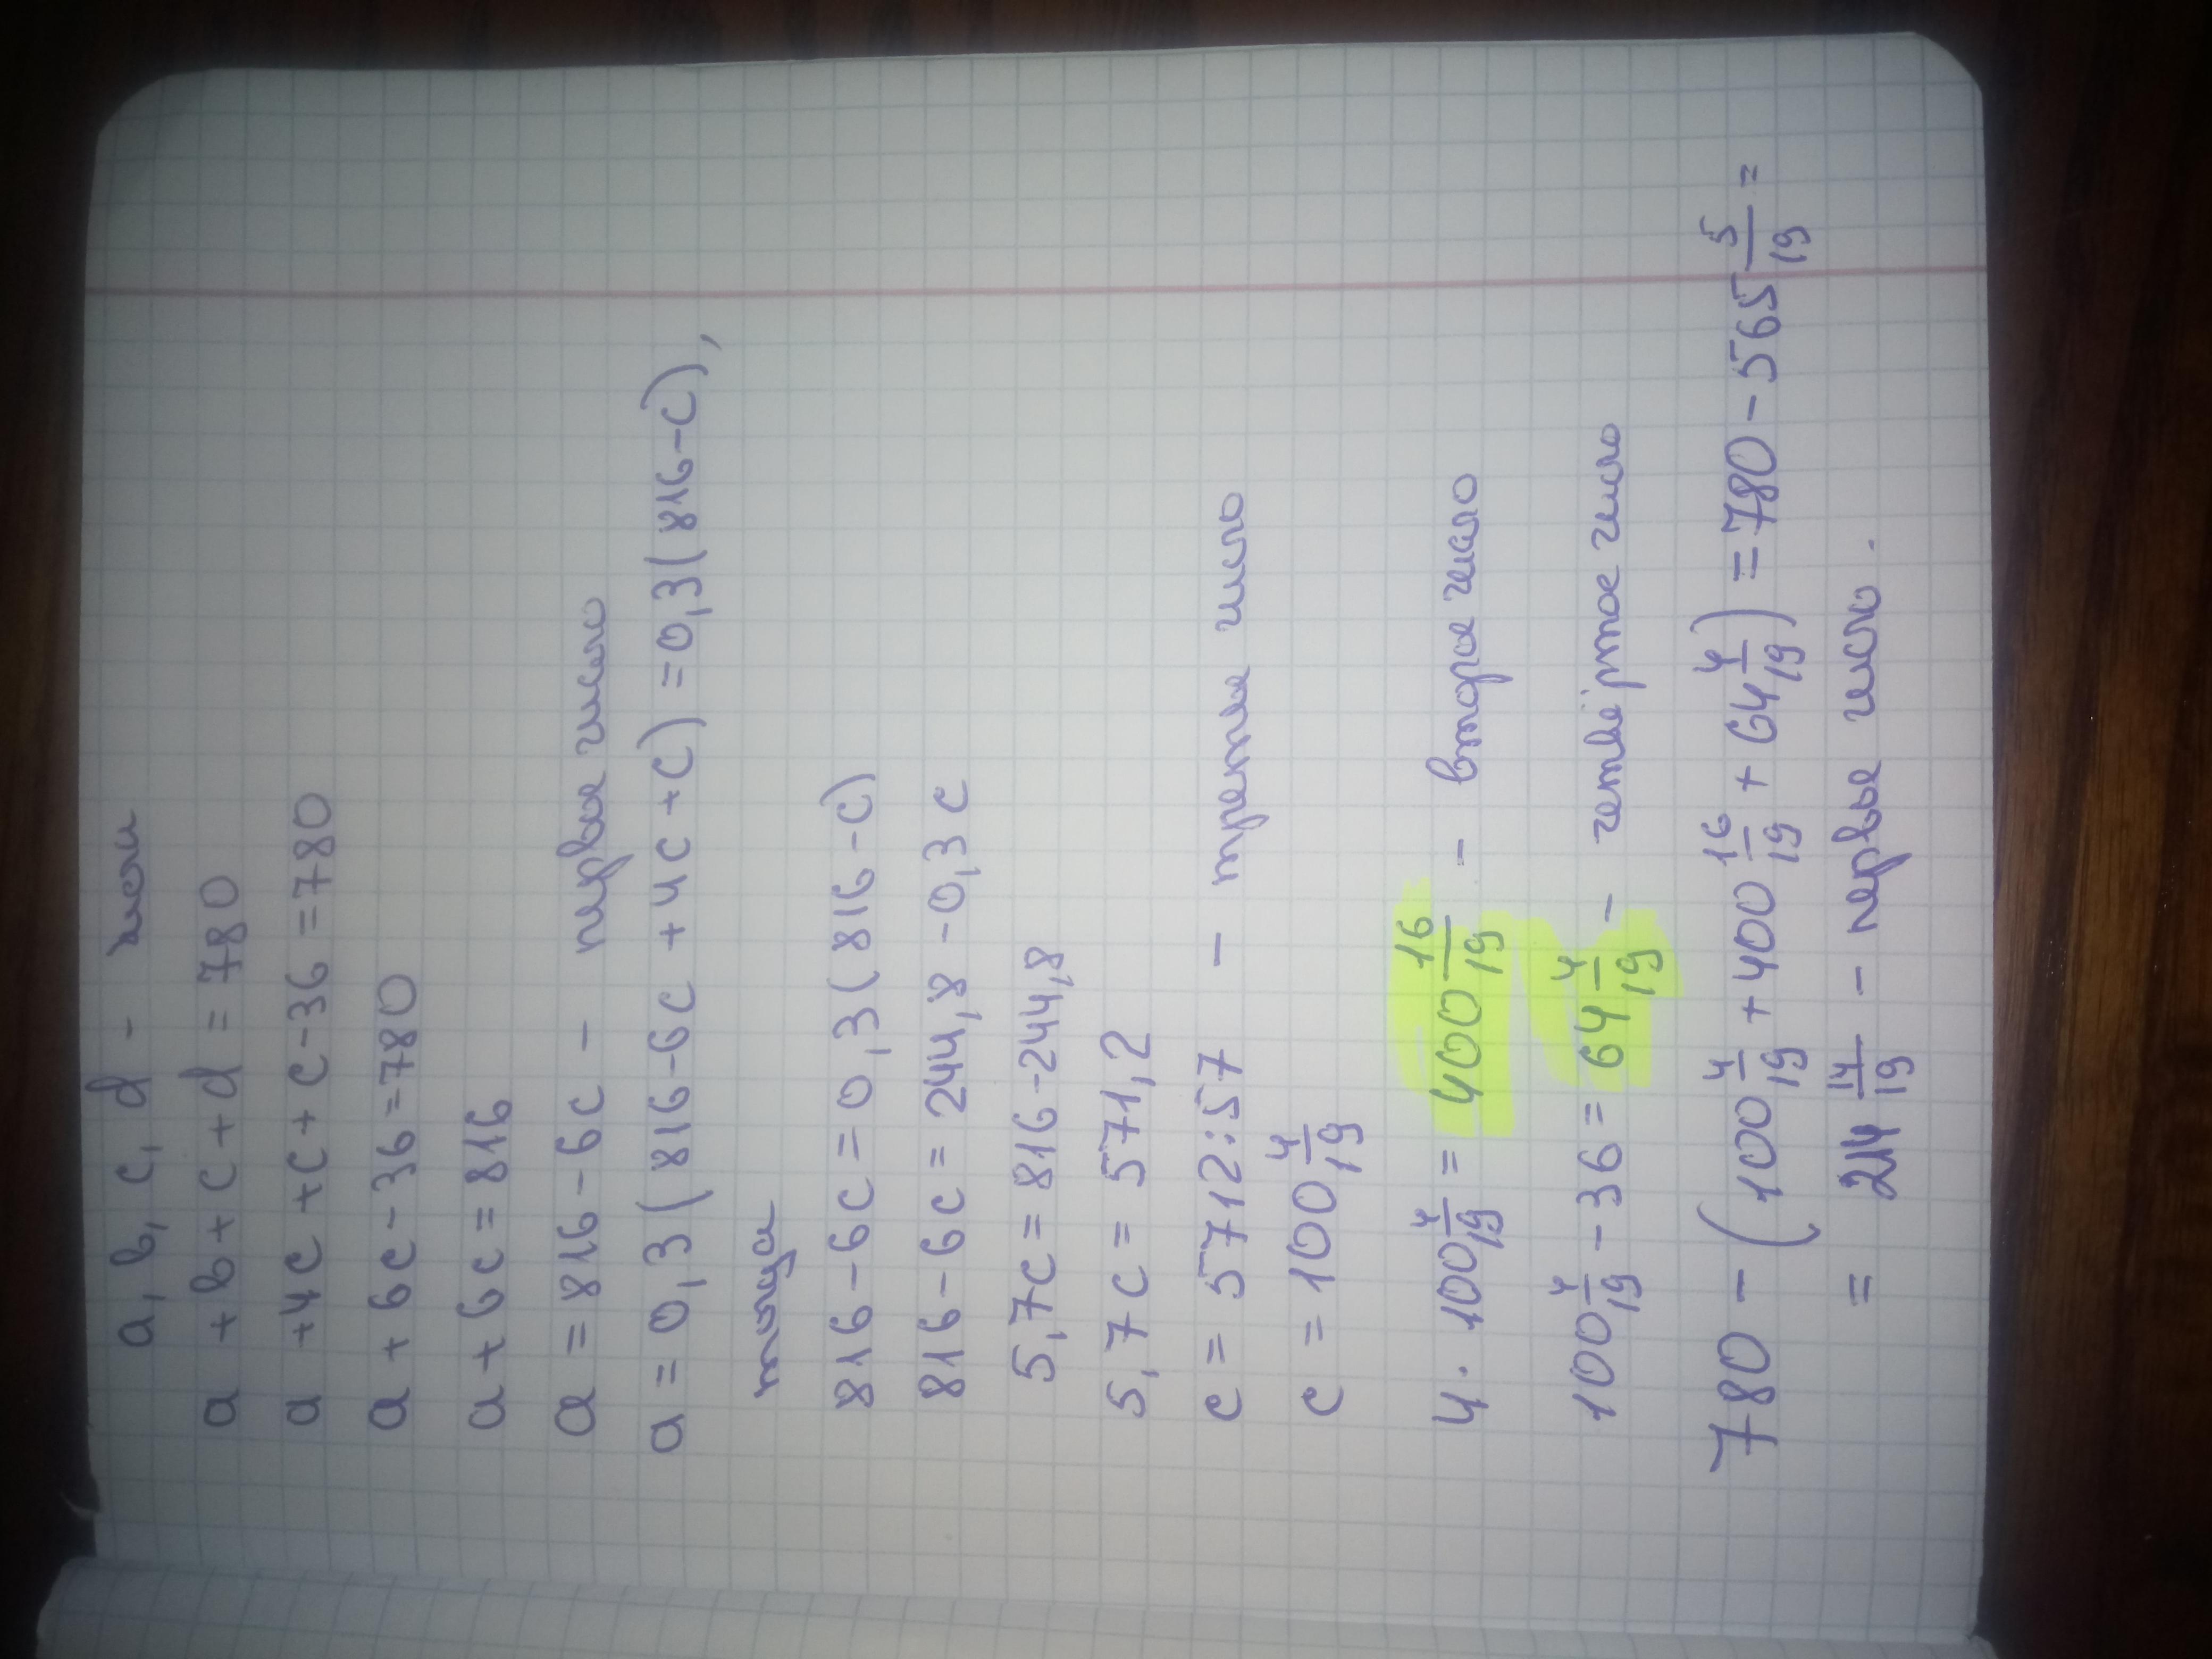 a, b, c, d - числа
a + b + c + d = 780
a + 4c + c + c - 36 = 780
a + 6c - 36 = 780
a + 6c = 816
a = 816 - 6c - первое число
a = 0,3 (816 - 6c + 4c + c) = 0,3 (816 - c),
тогда
816 - 6c = 0,3 (816 - c)
816 - 6c = 244,8 - 0,3c
5,7c = 816 - 244,8
5,7c = 571,2
c = 5712 : 57 - третье число
c = 100 4/19
4 · 100 4/19 = 400 16/19 - второе число
100 4/19 - 36 = 64 4/19 - четвёртое число
780 - (100 4/19 + 400 16/19 + 64 4/19) = 780 - 565 5/19 =
= 214 14/19 - первое число.